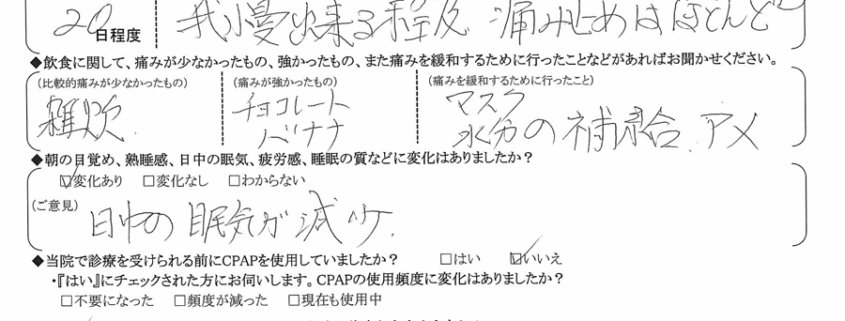 20日程度 我慢出来る程度 痛み止めはほとんど
◆飲食に関して、痛みが少なかったもの、強かったもの、また痛みを緩和するために行ったことなどがあればお聞かせください。
(比較的痛みが少なかったもの) (痛みが強かったもの) (痛みを緩和するために行ったこと)
雑炊 チョコレート マスク
バナナ 水分の補給 アメ
◆朝の目覚め、熟睡感、日中の眠気、疲労感、睡眠の質などに変化はありましたか?
☑変化あり □変化なし □わからない
(ご意見)
日中の眠気が減少
◆当院で診療を受けられる前にCPAPを使用していましたか? □はい ☑いいえ
・『はい』にチェックされた方にお伺いします。CPAPの使用頻度に変化はありましたか?
□不要になった □頻度が減った □現在も使用中